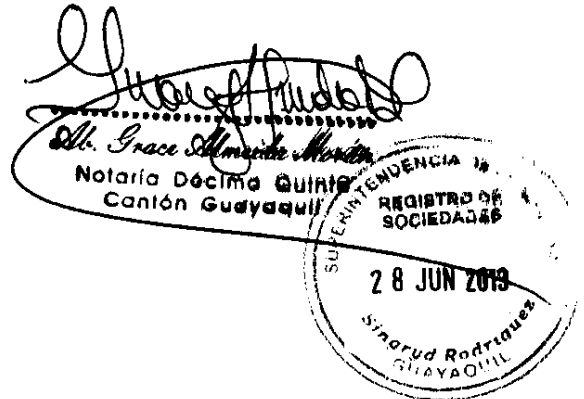 Ab. Grace Almeida Morán
Notaría Décima Quinta
Cantón Guayaquil
SUPERINTENDENCIA
REGISTRO DE
SOCIEDADES
28 JUN 2013
Singrud Rodriguez
GUAYAQUIL